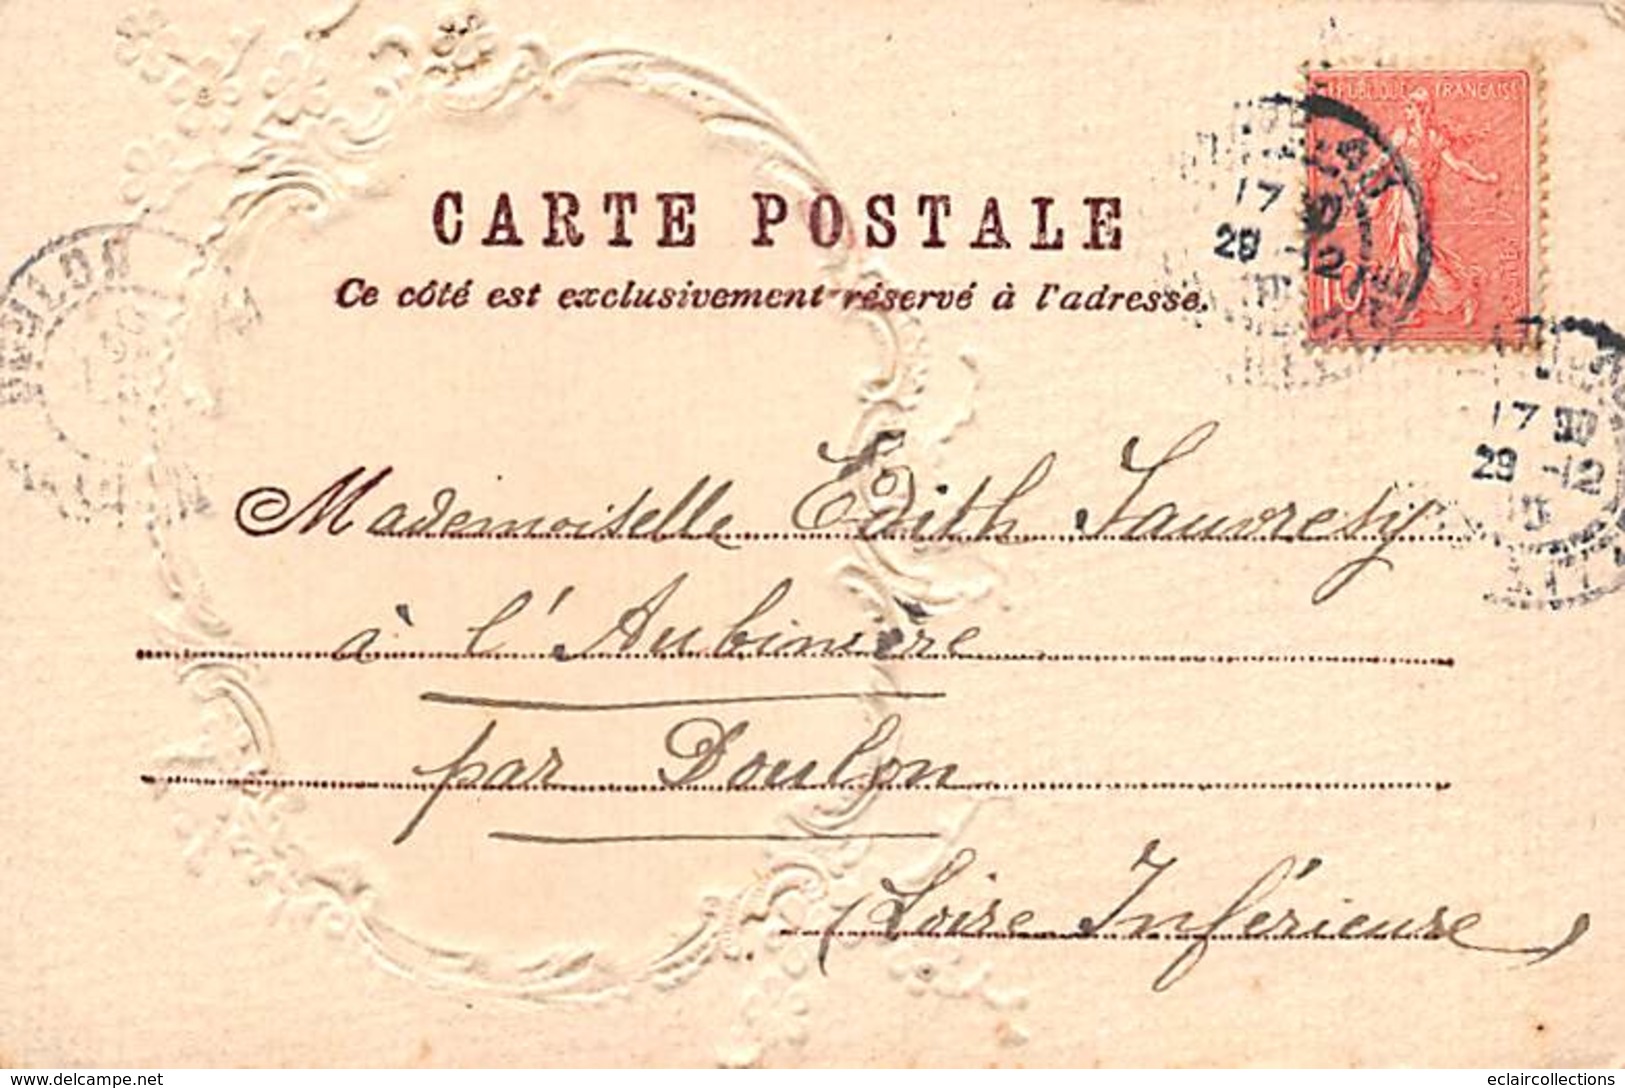 RÉPUBLIQUE FRANÇAISE
10
CARTE POSTALE
Ce côté est exclusivement réservé à l'adresse.
17 30
29 -12
17 30
29 -12
Mademoiselle Edith Sauvresy
à l'Aubinière
par Doulon
(Loire Inférieure)
www.delcampe.net
eclaircollections